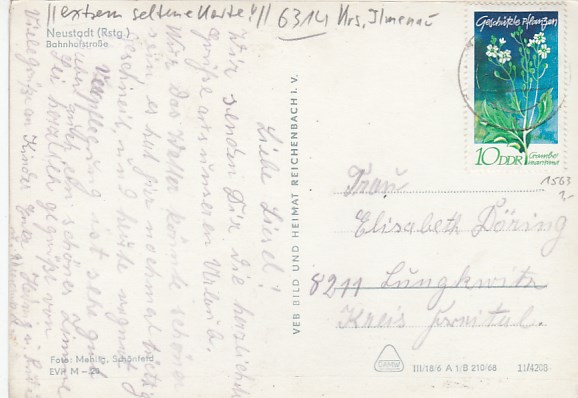 //extrem seltene Karte!// 6314 Krs. Ilmenau
Neustadt (Rstg.)
Bahnhofstraße
Liebe Liesel!
Wir senden Dir die herzlichsten
Grüße aus unserem Urlaub.
Das Wetter könnte schöner
sein, es hat hier nochmal
geschneit u. heute regnet
Verpflegung ist sehr gut
ein schönes Zimmer
Sei herzlich gegrüßt von
Viele Grüße an Kinder
Foto: Mehlig, Schönfeld
VEB BILD UND HEIMAT REICHENBACH i. V.
Geschützte Pflanzen
10 DDR Crambe
maritima
1563
Frau
Elisabeth Döring
8211 Lungkwitz
Kreis Freital.
III/18/6 A 1/B 210/68 11/4208